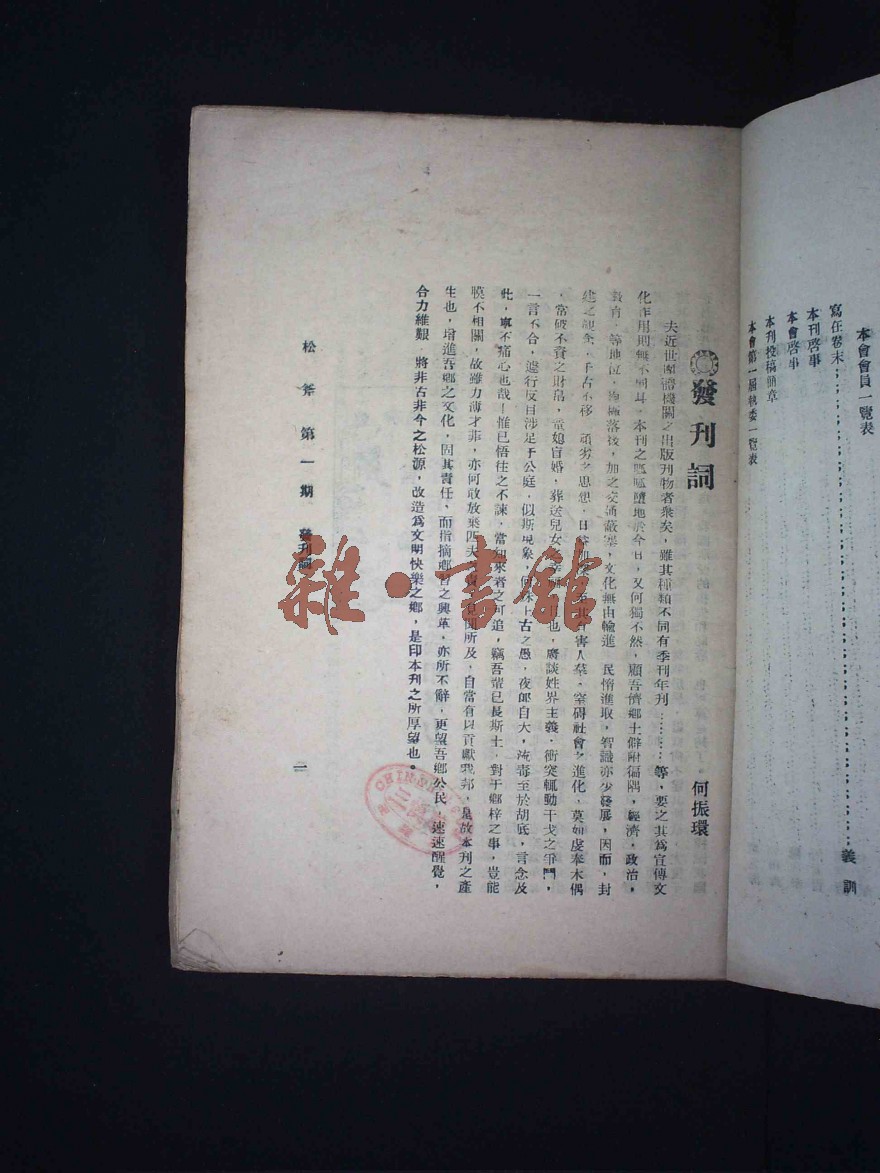 本會會員一覽表
寫在卷末…………義訓
本刊啓事
本會啓事
本刊投稿簡章
本會第一屆執委一覽表
發刊詞
何振環
夫近世團體機關之出版刊物者衆矣，雖其種類不同有季刊年刊………等，要之其爲宣傳文
化作用則無不同耳，本刊之呱呱墮地於今日，又何獨不然，顧吾儕鄉土僻附偏隅，經濟，政治，
教育，等地位，落後，加之交通蔽塞，文化無由輸進 民惰進取，智識亦少發展，因而，封
建之觀念，千古不移 頑劣之思想，日害人羣，窒碍社會之進化，莫如虔奉木偶
，常破不資之財帛，童媳盲婚，葬送兒女也，廣談姓界主義，衝突輒動干戈之爭鬥，
一言不合，遽行反目涉足于公庭，似斯現象，何殊上古之愚，夜郎自大，流毒至於胡底，言念及
此，寧不痛心也哉！惟已悟往之不諫，當知來者之可追，竊吾輩已長斯土，對于鄉梓之事，豈能
膜不相關，故雖力薄才菲，亦何敢放棄匹夫見聞所及，自當有以貢獻我邦，是故本刊之產
生也，增進吾鄉之文化，固其責任，而指摘鄉曾之興革，亦所不辭，更望吾鄉公民，速速醒覺，
合力維艱 將非古非今之松源，改造爲文明快樂之鄉，是印本刊之所厚望也。
松斧第一期 發刊詞
一
雜·書館
CHINESE